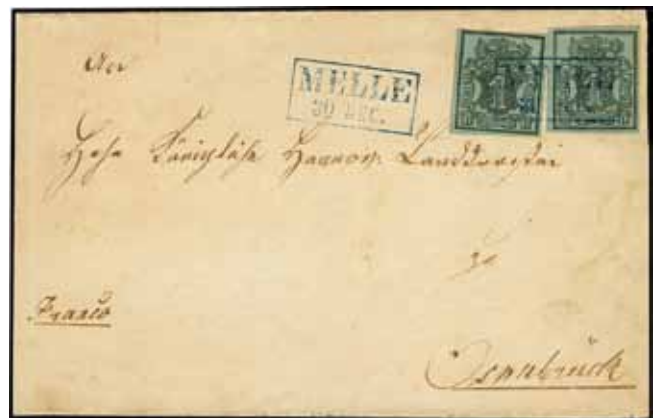 An
MELLE
30 DEC.
1
Hohe Königliche Hannov. Landdrostei
zu
Franco
Osnabrück